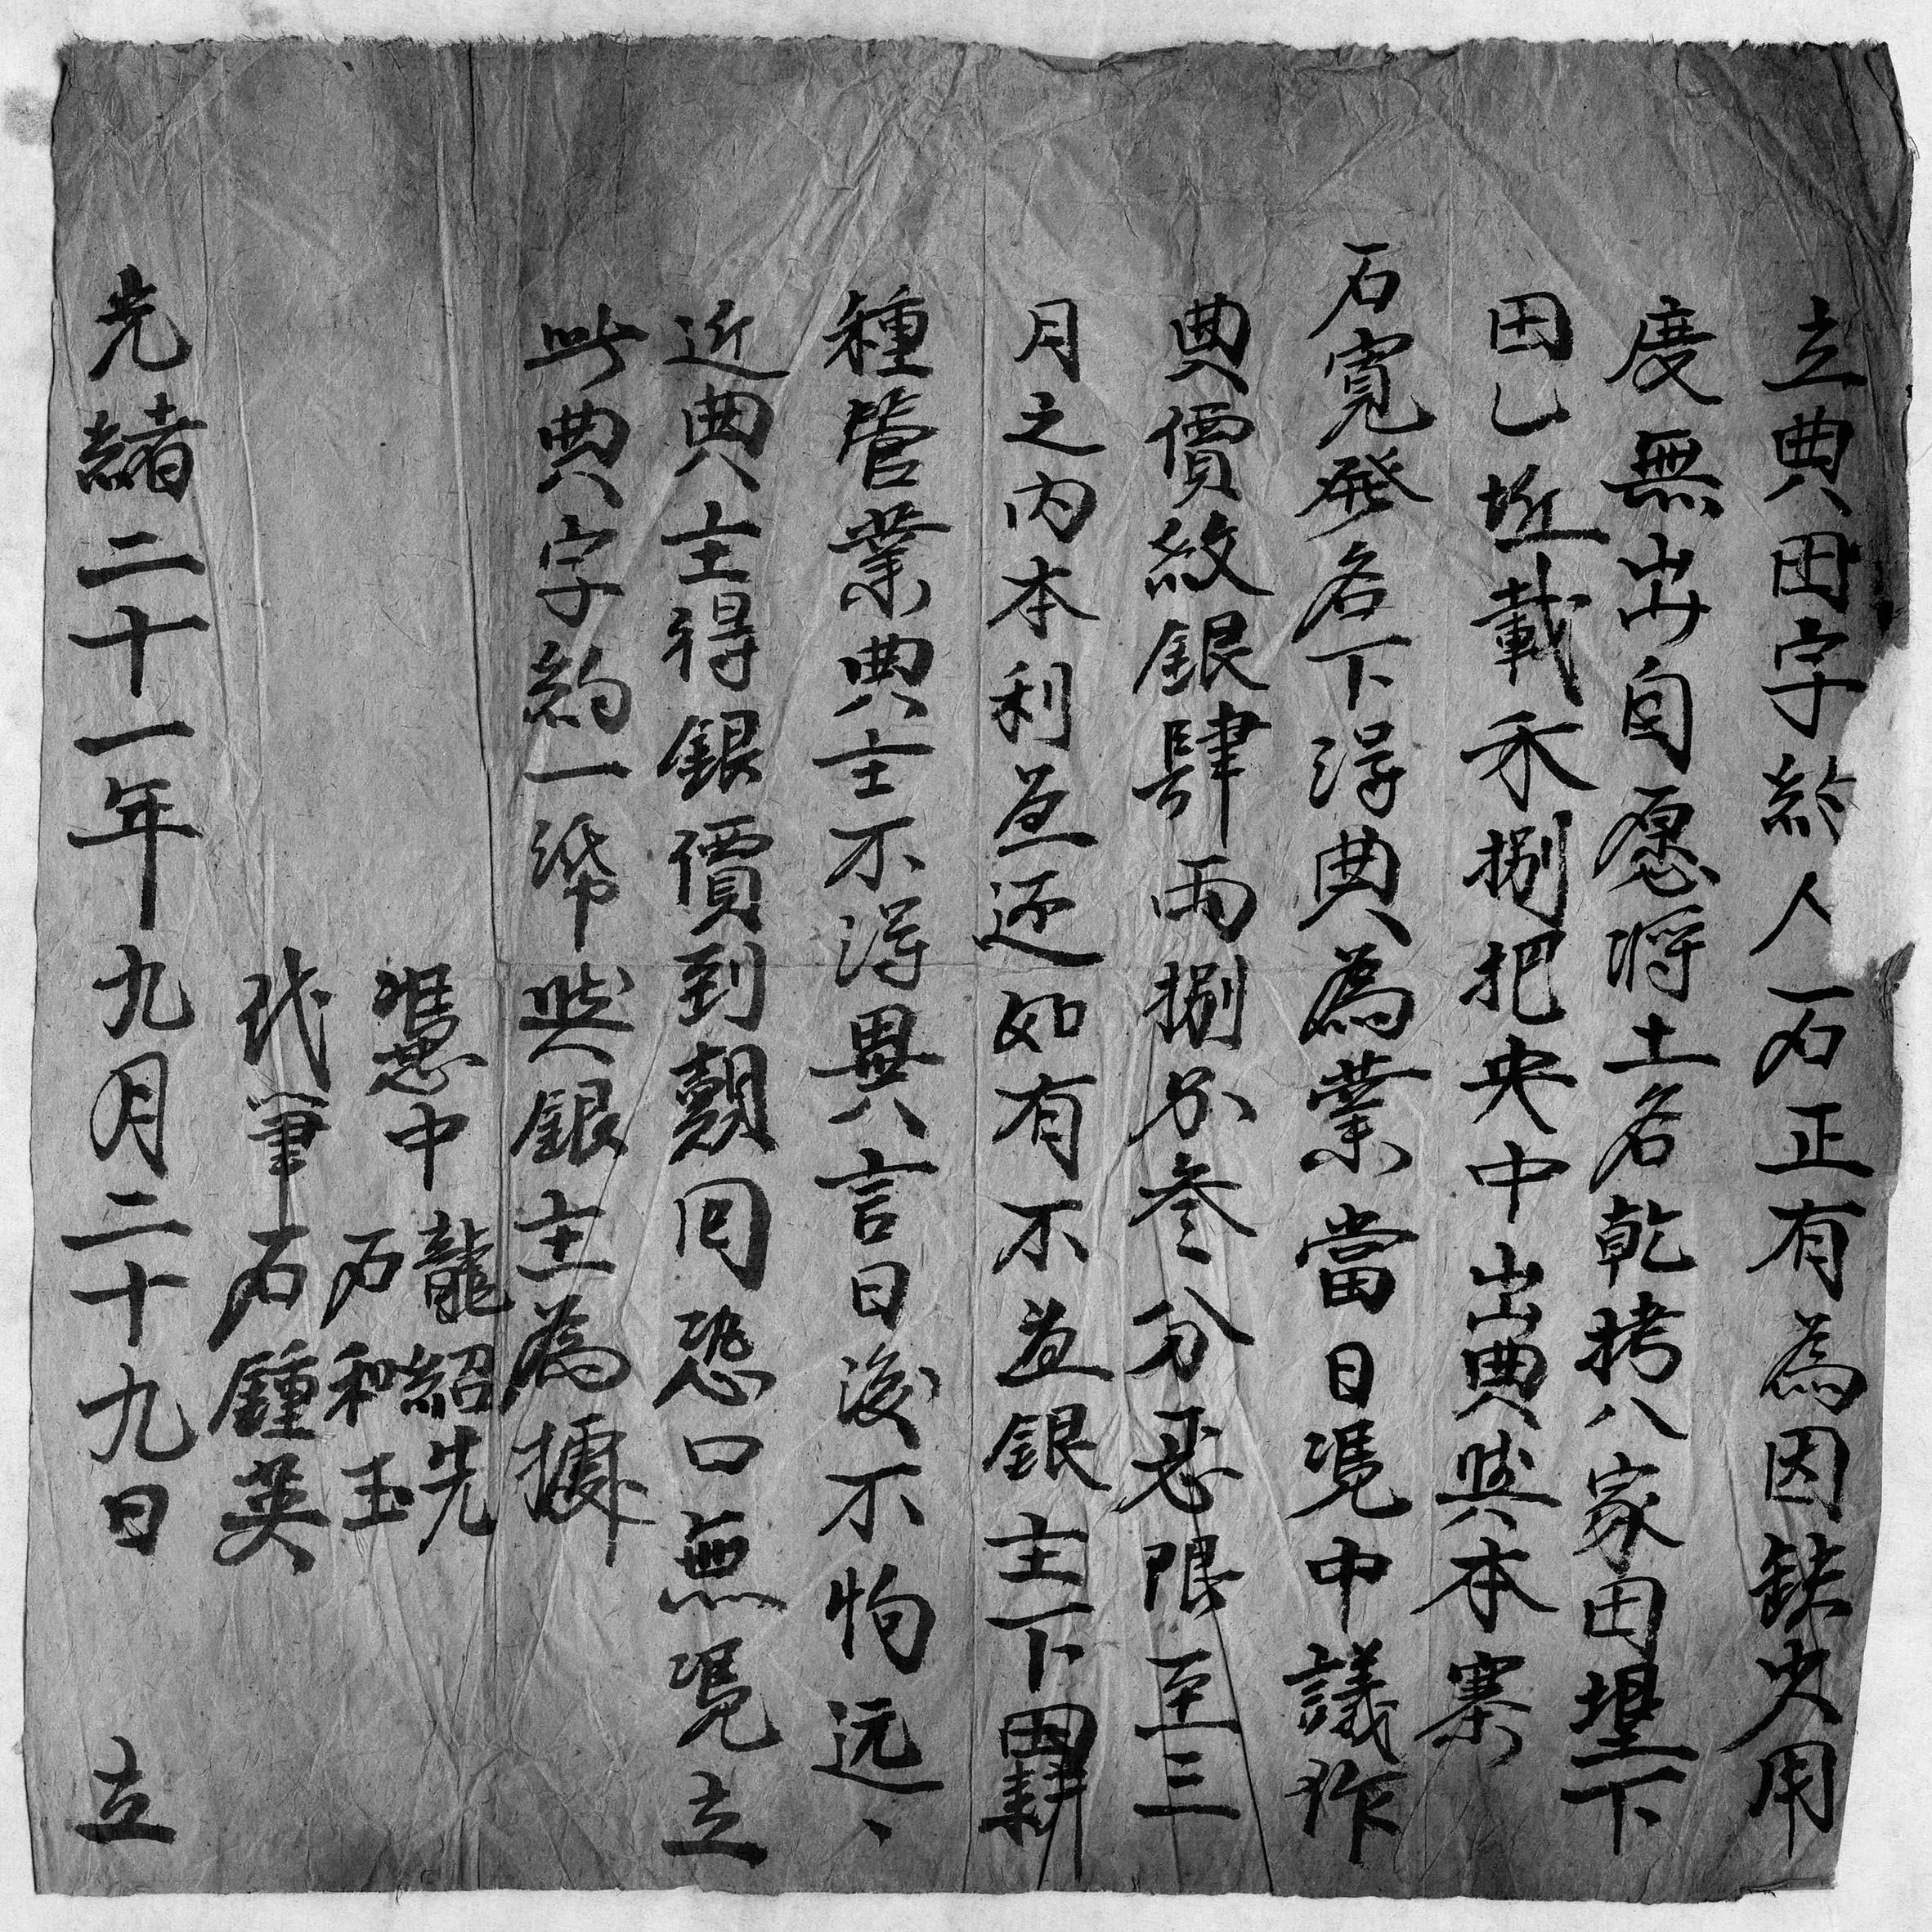 立典田字約人石正有為因缺少用
度無出自愿将土名乾拷八家田壋下
田乚坵載禾捌把央中出典與本寨
石寬発名下淂典為業當日凴中議作
典價紋銀肆両捌分叁分忍限至三
月之内本利並还如有不並銀主下田耕
種管業典主不淂異言日後不怕远丶
近典主得銀價到贖回恐口無凴立
此典字約一帋與銀主為據
憑中 龍紹先
石和玉
代筆 石鍾英
光緒二十一年九月二十九日 立